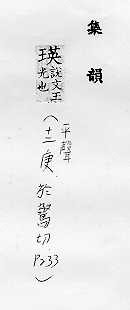 集韻
瑛說文玉
光也
(平聲
十二庚於驚切P233)